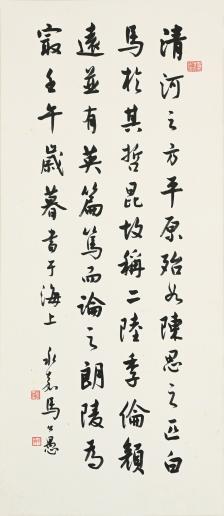 清河之方平原殆如陳思之匹白
馬於其哲昆故稱二陸季倫穎
遠並有英篇篤而論之朗陵為
最壬午歲暮書于海上
永嘉馬公愚